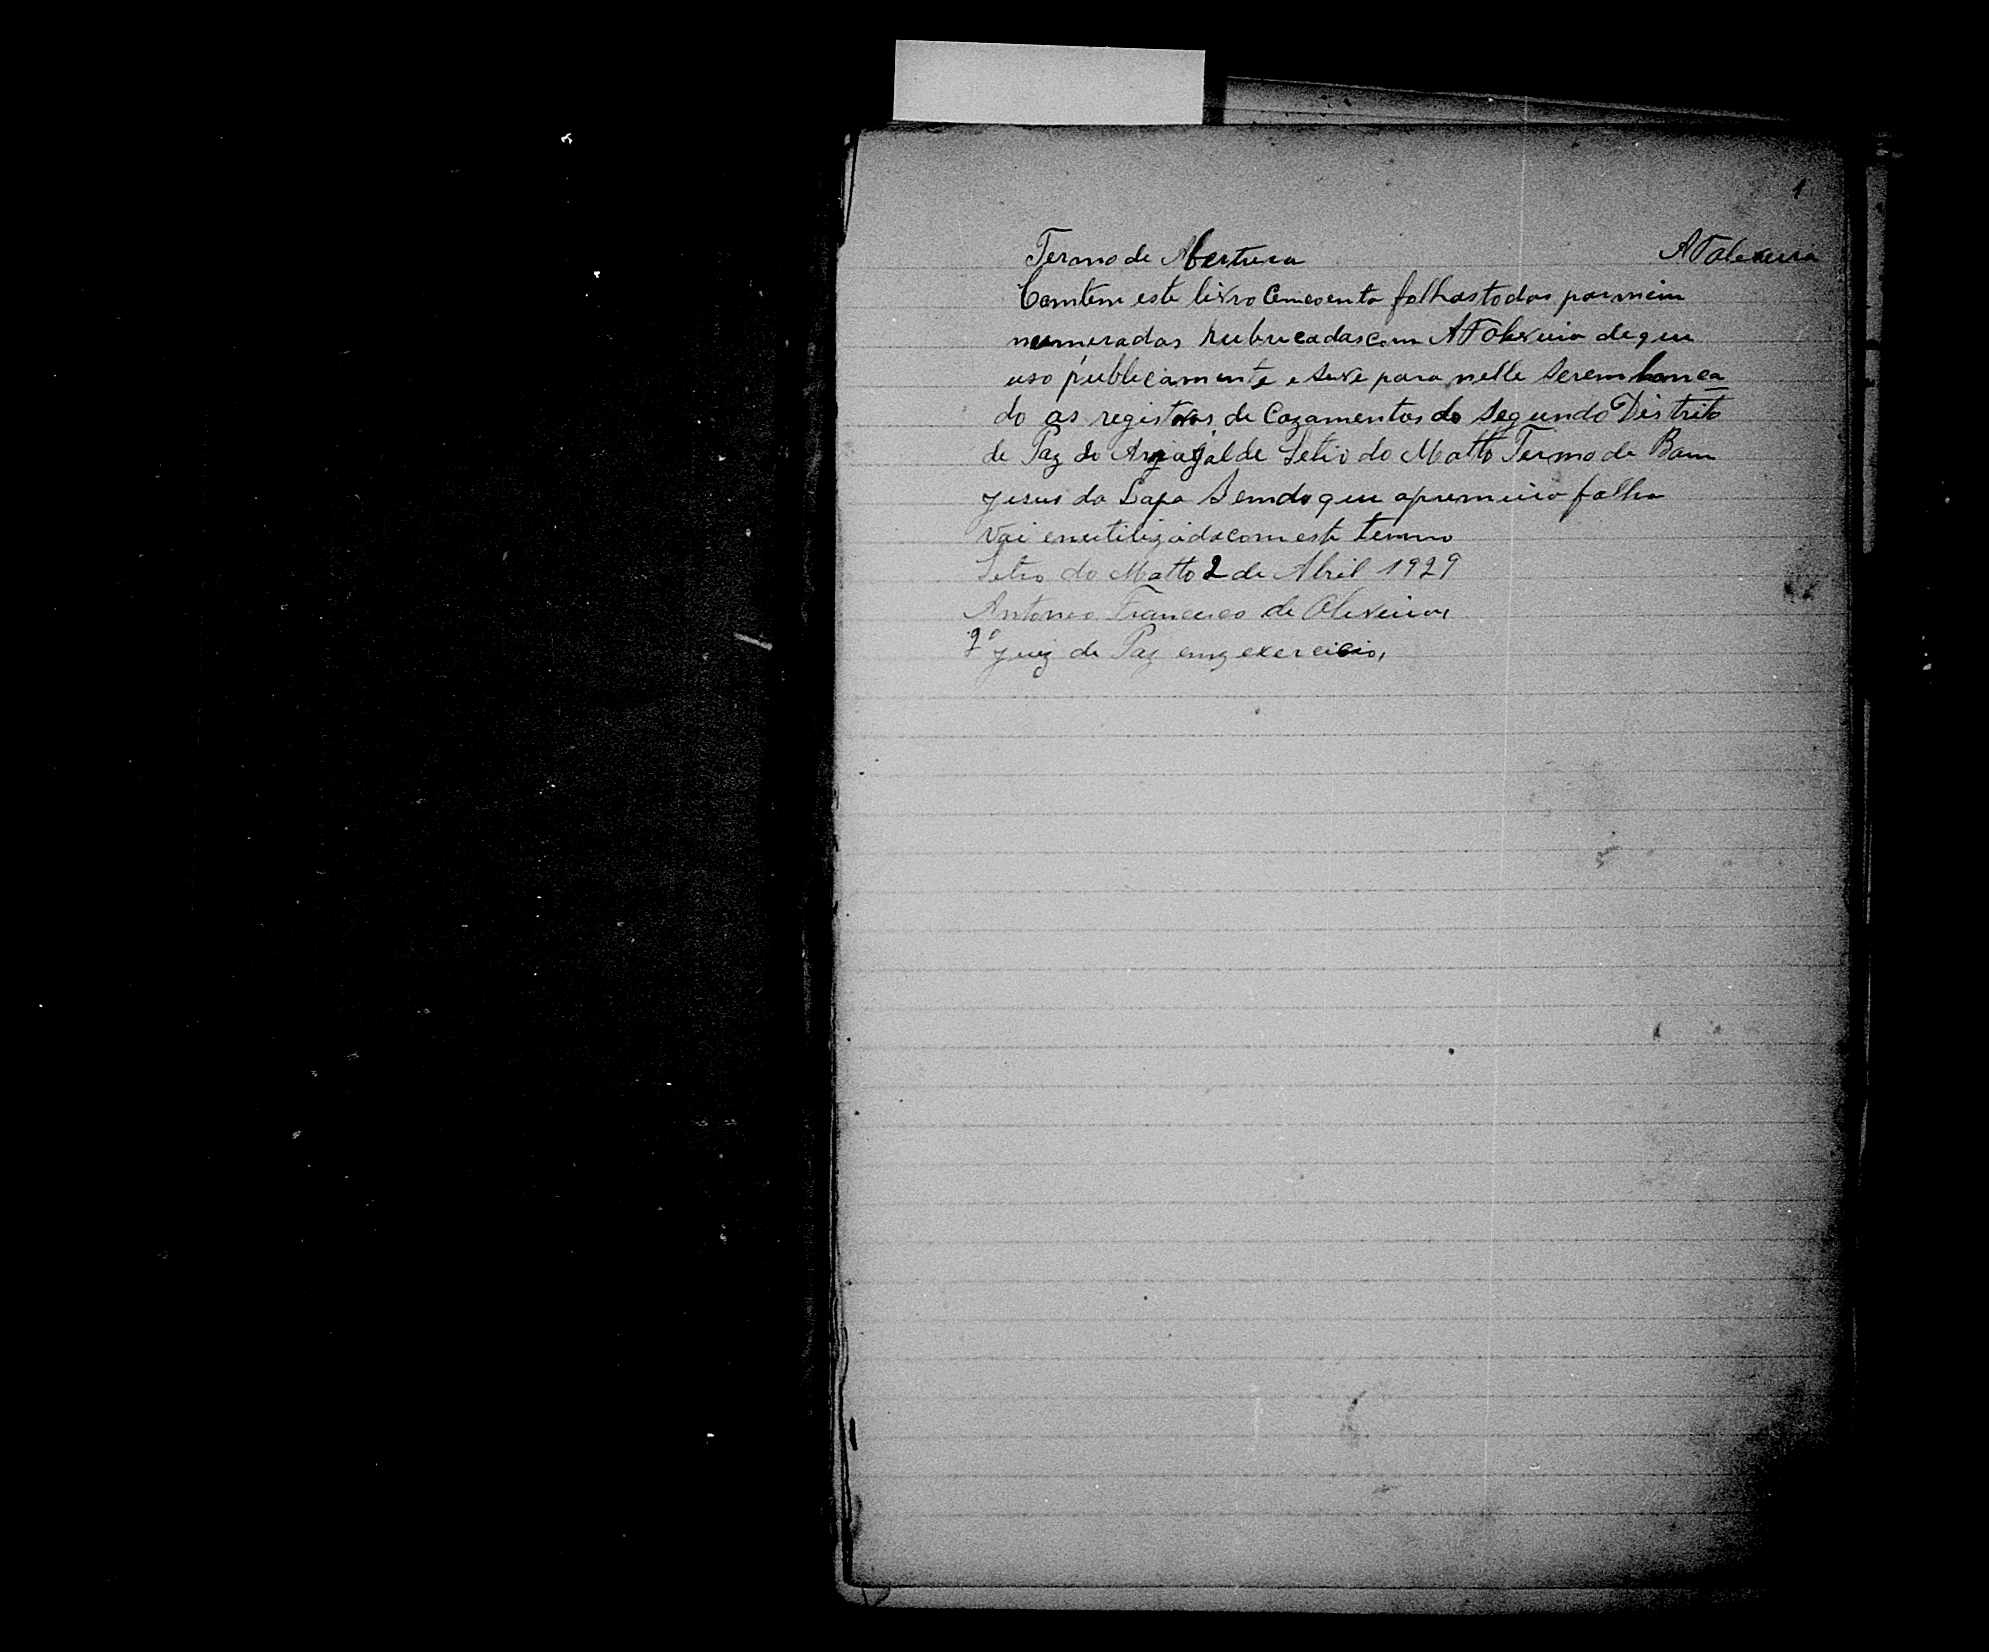 1
Termo de Abertura AFoliveira
Contem este livro Cincoenta folhas todas por mim
numeradas rubricadas com AFoliveira de que
uso publicamente e serve para nelle serem lança
do os registros de Cazamentos do Segundo Distrito
de Paz do Arraial de Setio do Matto Termo de Bom
Jesus da Lapa Sendo que a primeira folha
Vai enutilizada com este termo
Setio do Matto 2 de Abril 1929
Antonio Francisco de Oliveira
2º Juiz de Paz em exercicio,